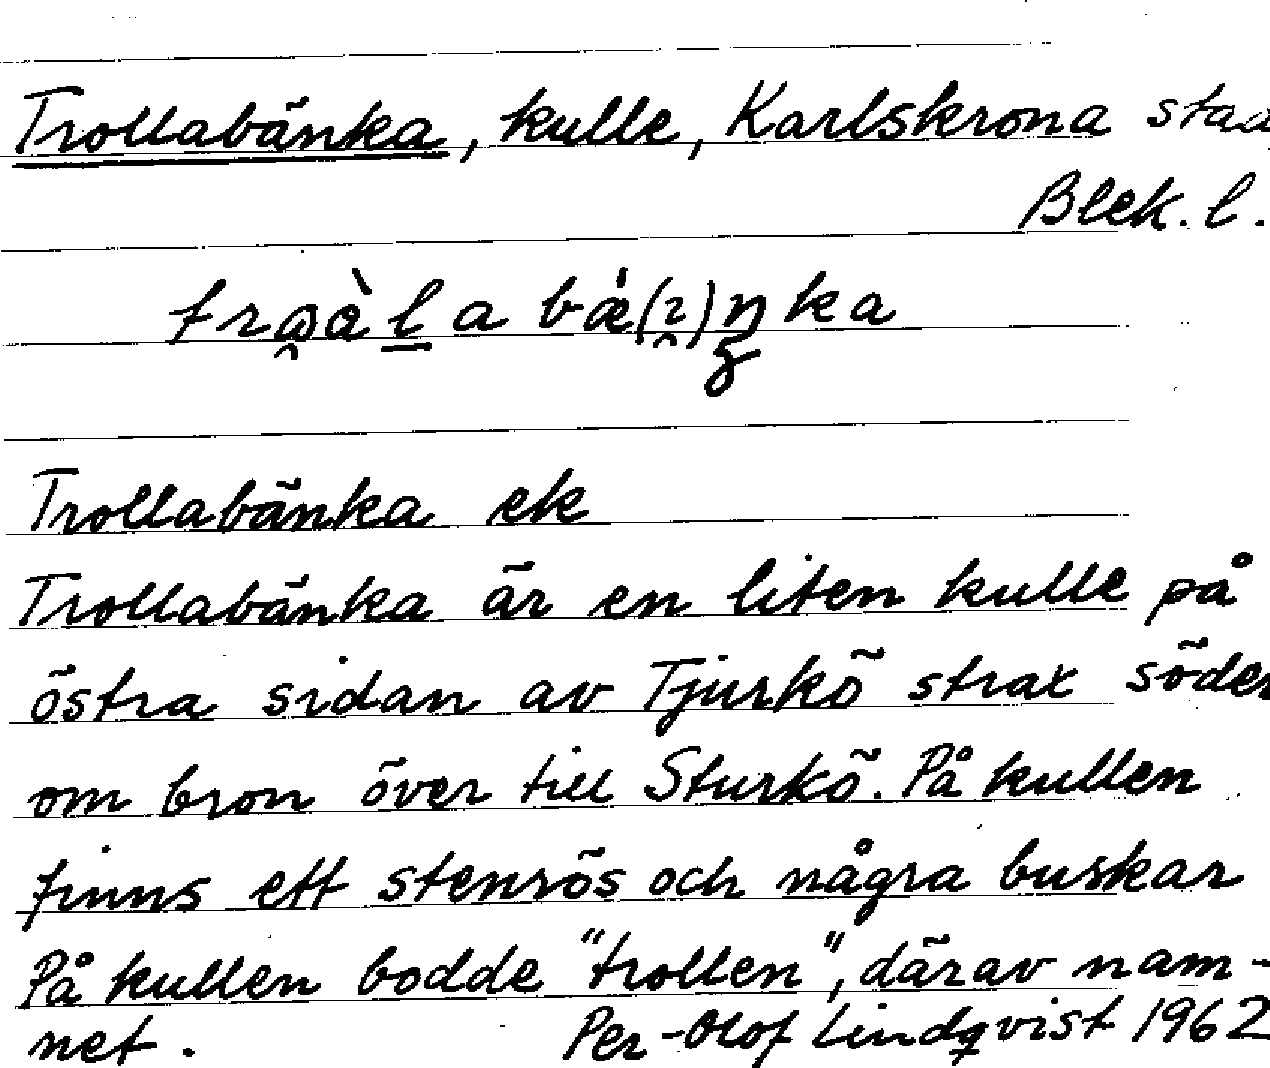 Trollabänka, kulle, Karlskrona stad
Blek. l.
Trollabänka ek
Trollabänka är en liten kulle på
östra sidan av Tjurkö strax söder
om bron över till Sturkö. På kullen
finns ett stenrös och några buskar
På kullen bodde "trollen", därav nam-
net. Per-Olof Lindqvist 1962